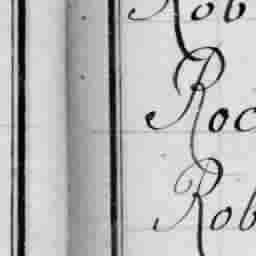 Rob
Roc
Rob